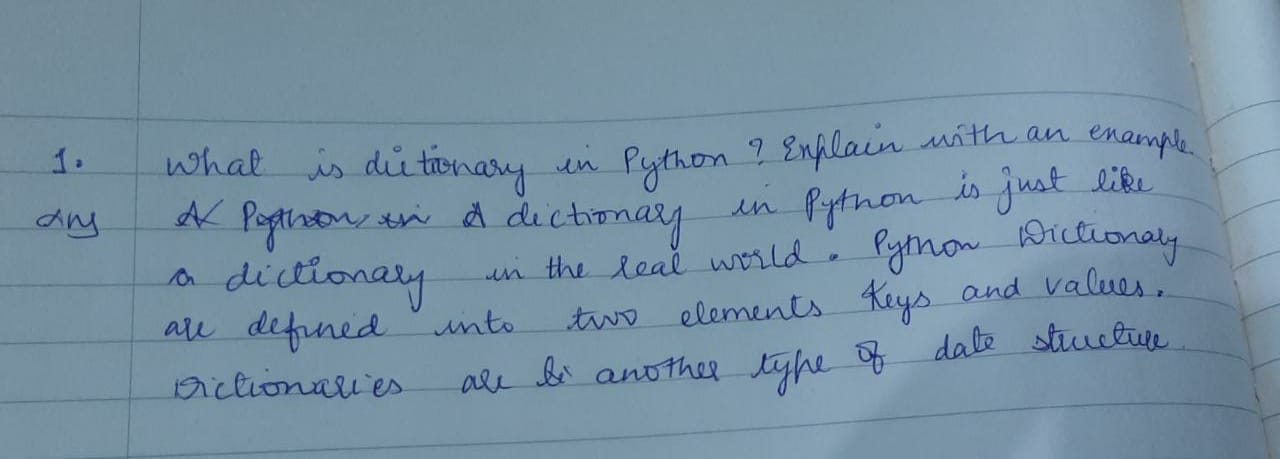 1. What is dictionary in Python ? Explain with an example
Ans A dictionary in Python is just like
a dictionary in the real world. Python Dictionary
are defined into two elements Keys and values.
Dictionaries are another type of date structure